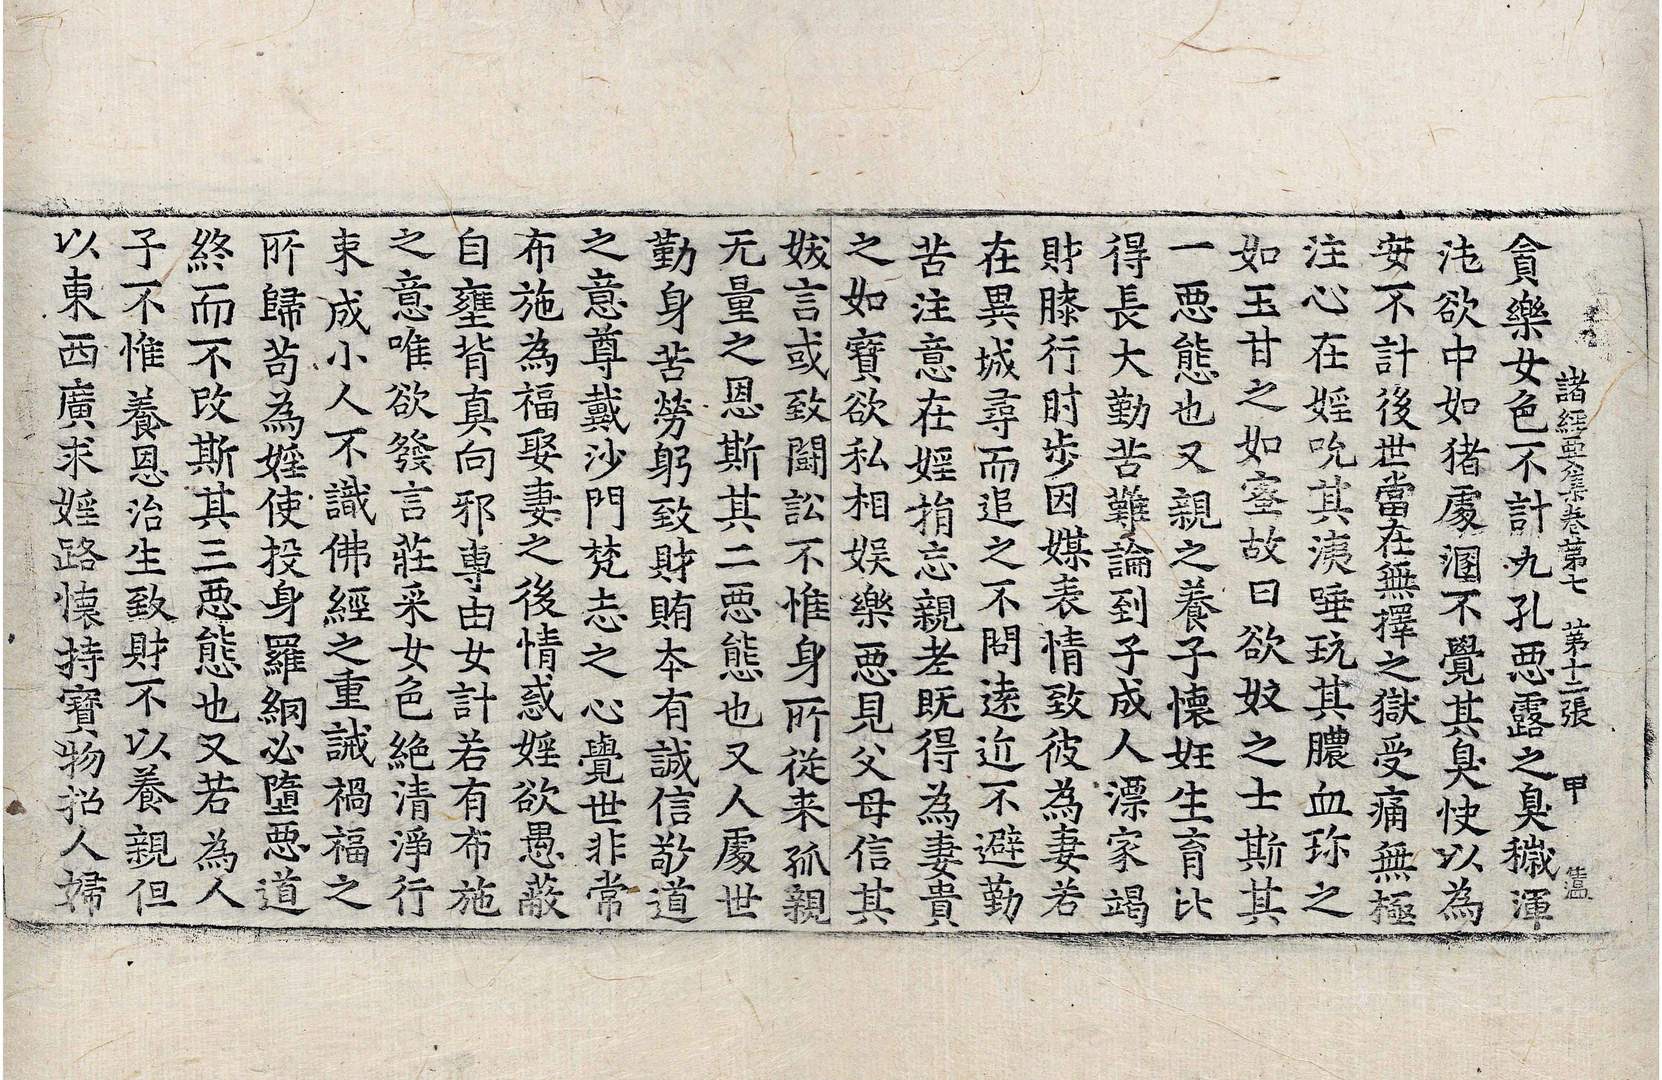 諸經要集卷第七 第十二張 甲
貪樂女色不計九孔惡露之臭穢渾
沌欲中如猪處溷不覺其臭快以為
安不計後世當在無擇之獄受痛無極
注心在婬吮其洟唾玩其膿血珎之
如玉甘之如蜜故曰欲奴之士斯其
一惡態也又親之養子懷妊生育比
得長大勤苦難論到子成人漂家竭
財膝行肘步因媒表情致彼為妻若
在異城尋而追之不問遠近不避勤
苦注意在婬捐忘親老既得為妻貴
之如寶欲私相娛樂惡見父母信其
妭言或致鬪訟不惟身所從来孤親
无量之恩斯其二惡態也又人處世
勤身苦勞躬致財賄本有誠信敬道
之意尊戴沙門梵志之心覺世非常
布施為福娶妻之後情惑婬欲愚蔽
自壅背真向邪專由女計若有布施
之意唯欲發言莊采女色絶清淨行
束成小人不識佛經之重誡禍福之
所歸茍為婬使投身羅網必墮惡道
終而不改斯其三惡態也又若為人
子不惟養恩治生致財不以養親但
以東西廣求婬路懷持寶物招人婦